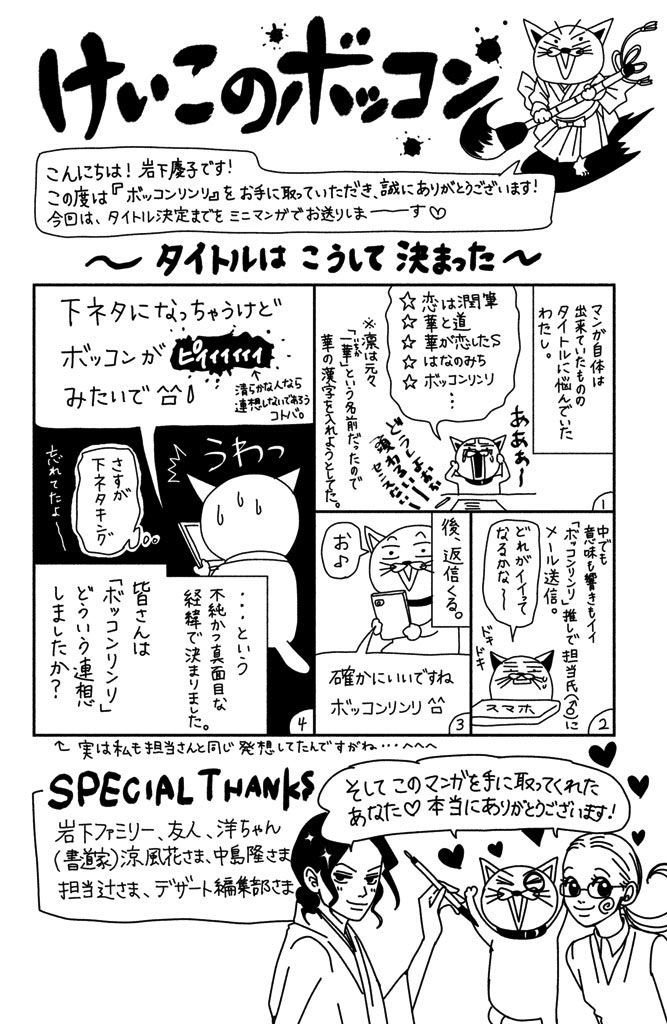 けいこのボッコン
こんにちは！岩下慶子です！
この度は『ボッコンリンリ』をお手に取っていただき、誠にありがとうございます！
今回は、タイトル決定までをミニマンガでお送りしまーーす♡
〜タイトルは こうして 決まった〜
マンガ自体は
出来ていたものの
タイトルに悩んでいた
わたし。
☆ 恋は潤筆
☆ 華と道
☆ 華が恋したS
☆ はなのみち
☆ ボッコンリンリ
…
※凛は元々
「一華」という名前だったので
華の漢字を入れようとしてた。
あああぁ〜
どうしよおぉ
頭わるい
センスない
1
中でも
意味も響きもイイ
「ボッコンリンリ」推しで担当氏(♂)に
メール送信。
どれがイイって
なるかな〜
ドキ
ドキ
スマホ
2
後、返信くる。
お♪
確かにいいですね
ボッコンリンリ^^
3
下ネタになっちゃうけど
ボッコンが ピイィィィィィ
みたいで^^♪
↑
清らかな人なら
連想しないであろう
コトバ。
うわっ
さすが
下ネタキング
忘れてたよー
…という
不純かつ真面目な
経緯で決まりました。
皆さんは
「ボッコンリンリ」
どういう連想
しましたか？
4
実は私も担当さんと同じ発想してたんですがね…へへへ
SPECIAL THANKS
岩下ファミリー、友人、洋ちゃん
(書道家)涼風花さま、中島隆さま
担当辻さま、デザート編集部さま
そして このマンガを手に取ってくれた
あなた♡ 本当にありがとうございます！